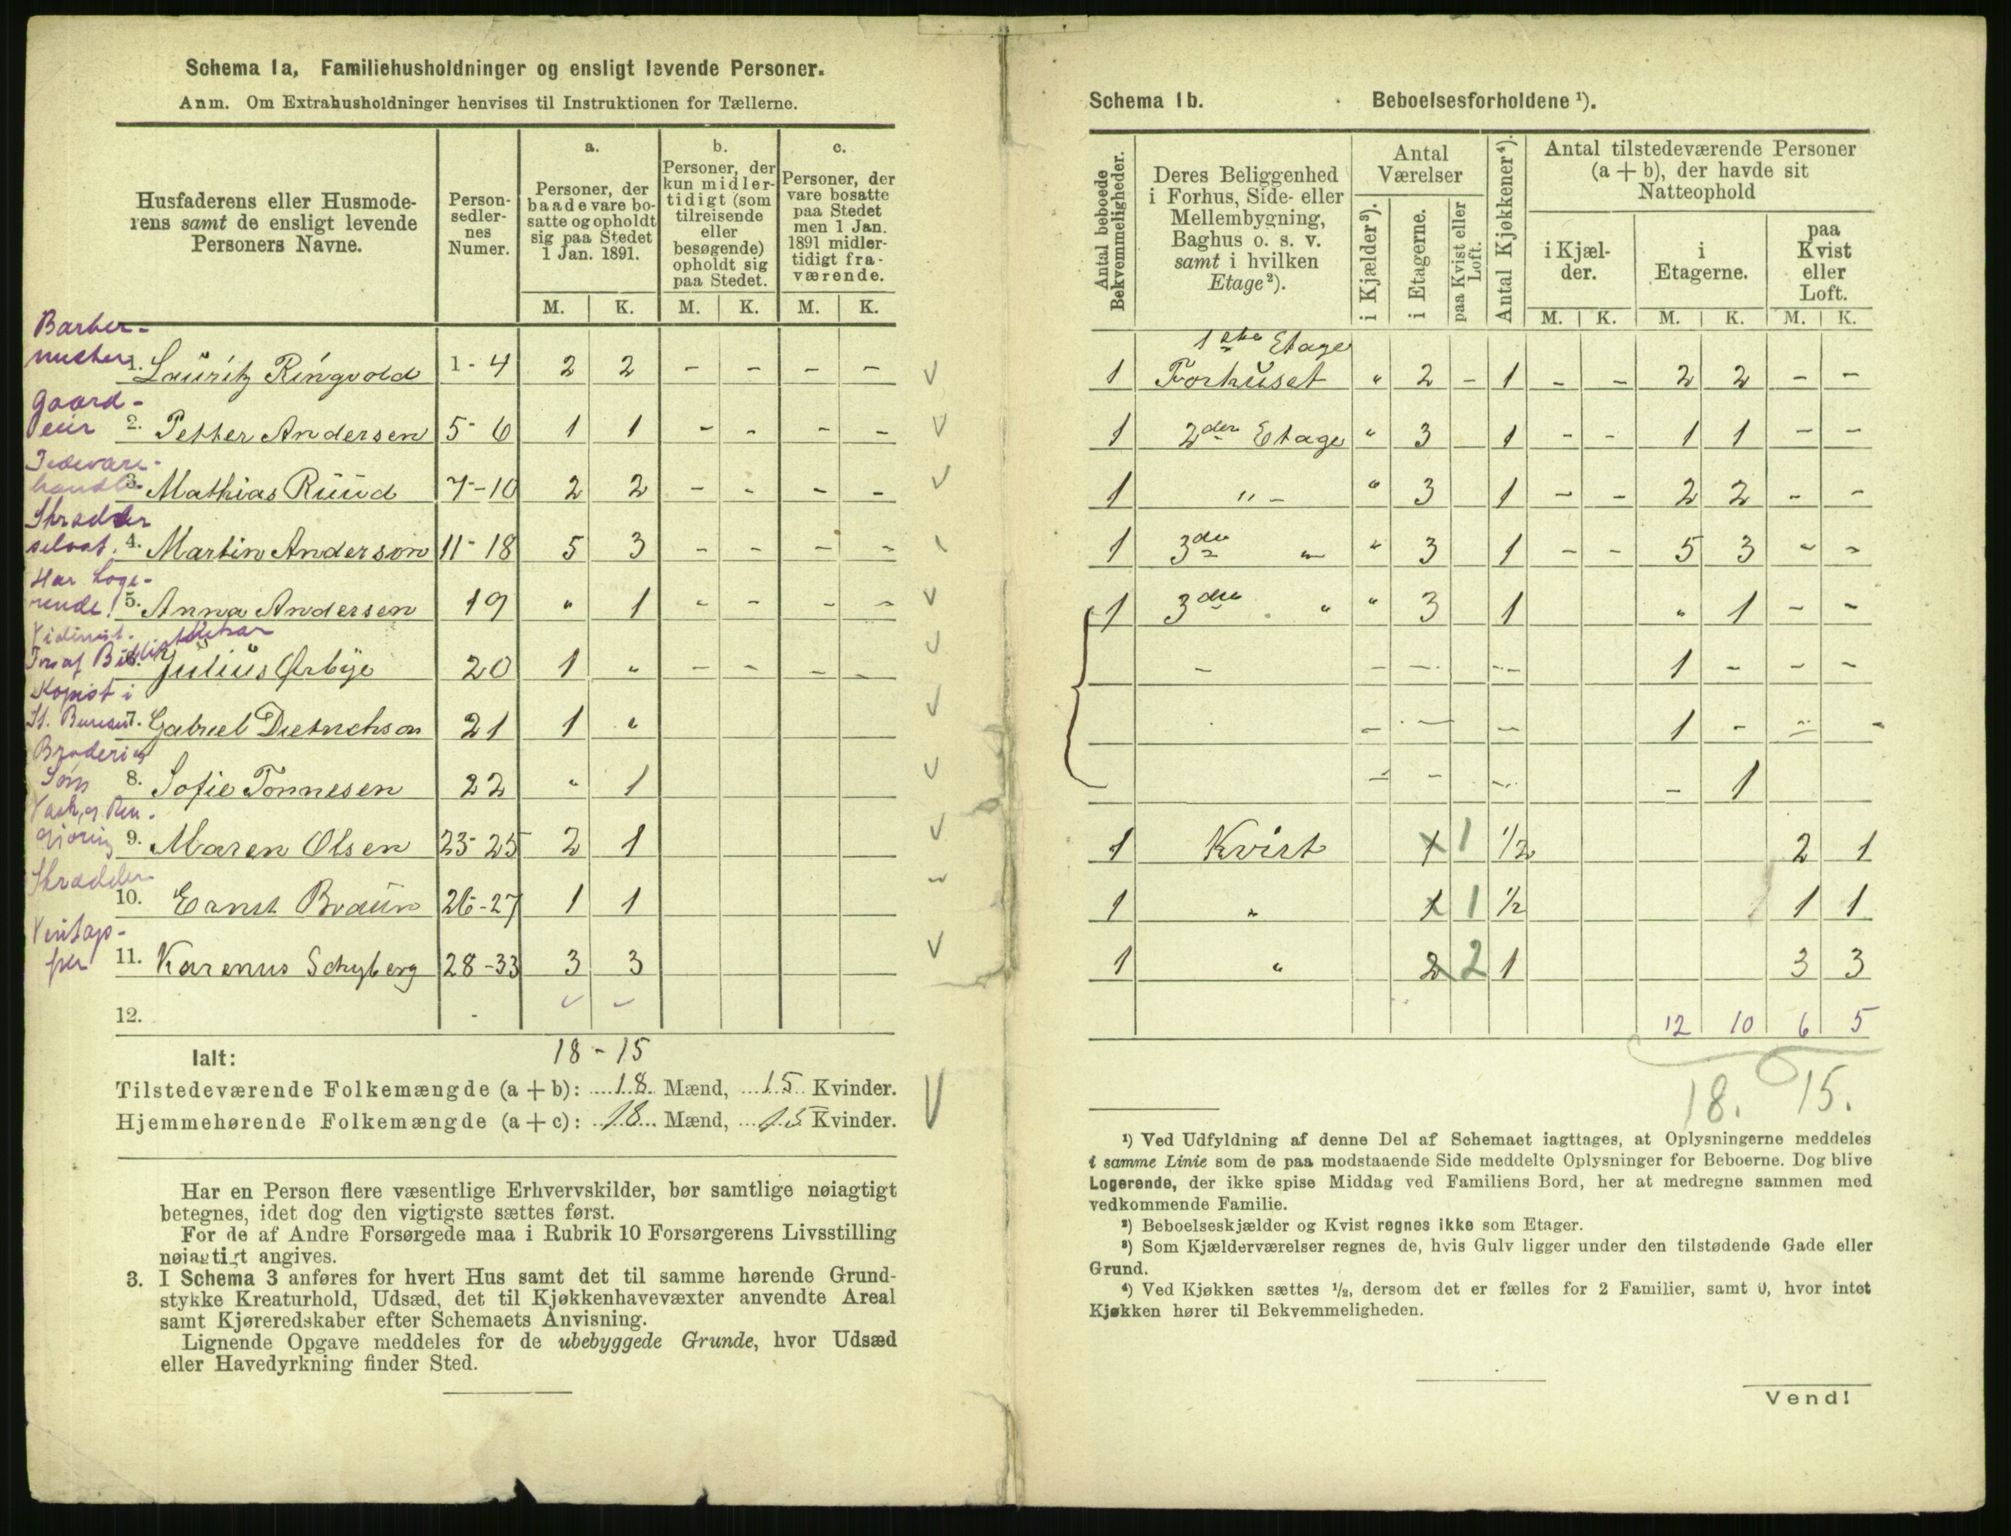 Schema 1a, Familiehusholdninger og ensligt levende Personer.
Anm. Om Extrahusholdninger henvises til Instruktionen for Tællerne.
Husfaderens eller Husmoderens samt de ensligt levende Personers Navne.
Personsedlernes Numer.
a. Personer, der baade vare bosatte og opholdt sig paa Stedet 1 Jan. 1891.
b. Personer, der kun midlertidigt (som tilreisende eller besøgende) opholdt sig paa Stedet.
c. Personer, der vare bosatte paa Stedet men 1 Jan. 1891 midlertidigt fraværende.
M. K. M. K. M. K.
Barbermester 1. Lauritz Ringvold 1-4 2 2 - - - -
Gaardeier 2. Petter Andersen 5-6 1 1 - - - -
3. Mathias Ruud 7-10 2 2 - - - -
Skrædder 4. Martin Anderson 11-18 5 3 - - - -
Har Logerende! 5. Anna Andersen 19 " 1 - - - -
Julius Ørbye 20 1 " - - - -
Kopist i St. Bureau 7. Gabriel Dietrichson 21 1 "
Broderi og Søm 8. Sofie Tønnesen 22 " 1
Vask og Rengjøring 9. Maren Olsen 23-25 2 1
Skrædder 10. Ernst Braun 26-27 1 1
Vintapper 11. Karenus Schyberg 28-33 3 3
12.
Ialt: 18 - 15
Tilstedeværende Folkemængde (a + b): 18 Mænd, 15 Kvinder.
Hjemmehørende Folkemængde (a + c): 18 Mænd, 15 Kvinder.
Har en Person flere væsentlige Erhvervskilder, bør samtlige nøiagtigt
betegnes, idet dog den vigtigste sættes først.
For de af Andre Forsørgede maa i Rubrik 10 Forsørgerens Livsstilling
nøiagtigt angives.
3. I Schema 3 anføres for hvert Hus samt det til samme hørende Grund-
stykke Kreaturhold, Udsæd, det til Kjøkkenhavevæxter anvendte Areal
samt Kjøreredskaber efter Schemaets Anvisning.
Lignende Opgave meddeles for de ubebyggede Grunde, hvor Udsæd
eller Havedyrkning finder Sted.
Schema 1b. Beboelsesforholdene ¹).
Antal beboede Bekvemmeligheder.
Deres Beliggenhed i Forhus, Side- eller Mellembygning, Baghus o. s. v. samt i hvilken Etage²).
Antal Værelser
i Kjælder³). i Etagerne. paa Kvist eller Loft.
Antal Kjøkkener⁴).
Antal tilstedeværende Personer (a + b), der havde sit Natteophold
i Kjælder. i Etagerne. paa Kvist eller Loft.
M. K. M. K. M. K.
1 1ste Etage Forhuset " 2 - 1 - - 2 2 - -
1 2den Etage " 3 1 - - 1 1 - -
1 " - " 3 1 - - 2 2 - -
1 3de " " 3 1 - - 5 3 " -
1 3die " " 3 1 " 1 - -
- - - - 1 - - -
- - - 1 - - -
- - - - 1
1 Kvist 1 1 1/2 2 1
1 " 1 1 1/2 1 1
1 " 2 2 1 3 3
12 10 6 5
18. 15.
¹) Ved Udfyldning af denne Del af Schemaet iagttages, at Oplysningerne meddeles
i samme Linie som de paa modstaaende Side meddelte Oplysninger for Beboerne. Dog blive
Logerende, der ikke spise Middag ved Familiens Bord, her at medregne sammen med
vedkommende Familie.
²) Beboelseskjælder og Kvist regnes ikke som Etager.
³) Som Kjælderværelser regnes de, hvis Gulv ligger under den tilstødende Gade eller
Grund.
⁴) Ved Kjøkken sættes ¹/₂, dersom det er fælles for 2 Familier, samt 0, hvor intet
Kjøkken hører til Bekvemmeligheden.
Vend!